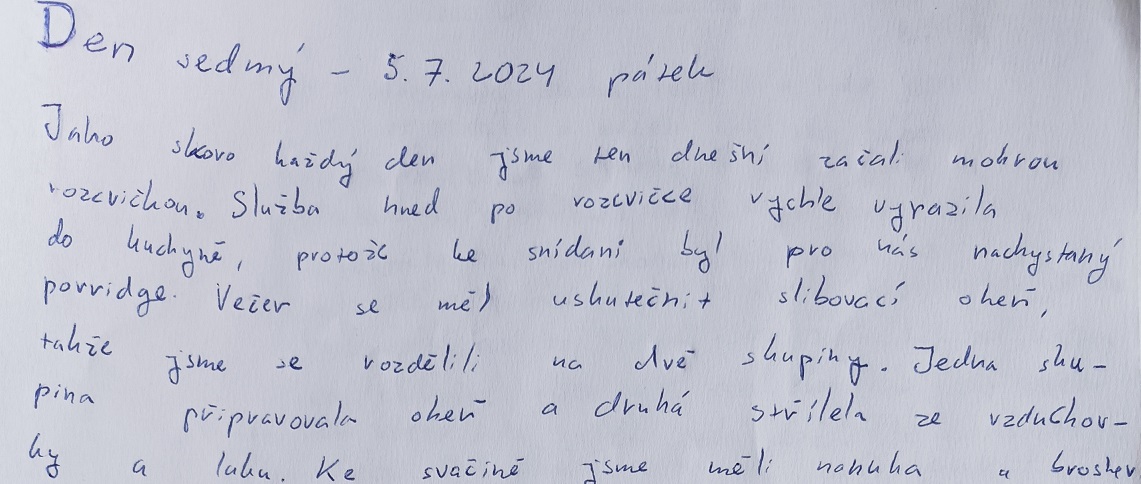 Den sedmý - 5. 7. 2024 pátek
Jako skoro každý den jsme ten dnešní začali mokrou
rozcvičkou. Služba hned po rozcvičce rychle vyrazila
do kuchyně, protože ke snídani byl pro nás nachystaný
porridge. Večer se měl uskutečnit slibovací oheň,
takže jsme se rozdělili na dvě skupiny. Jedna sku-
pina připravovala oheň a druhá střílela ze vzduchov-
ky a luku. Ke svačině jsme měli nanuka a broskev